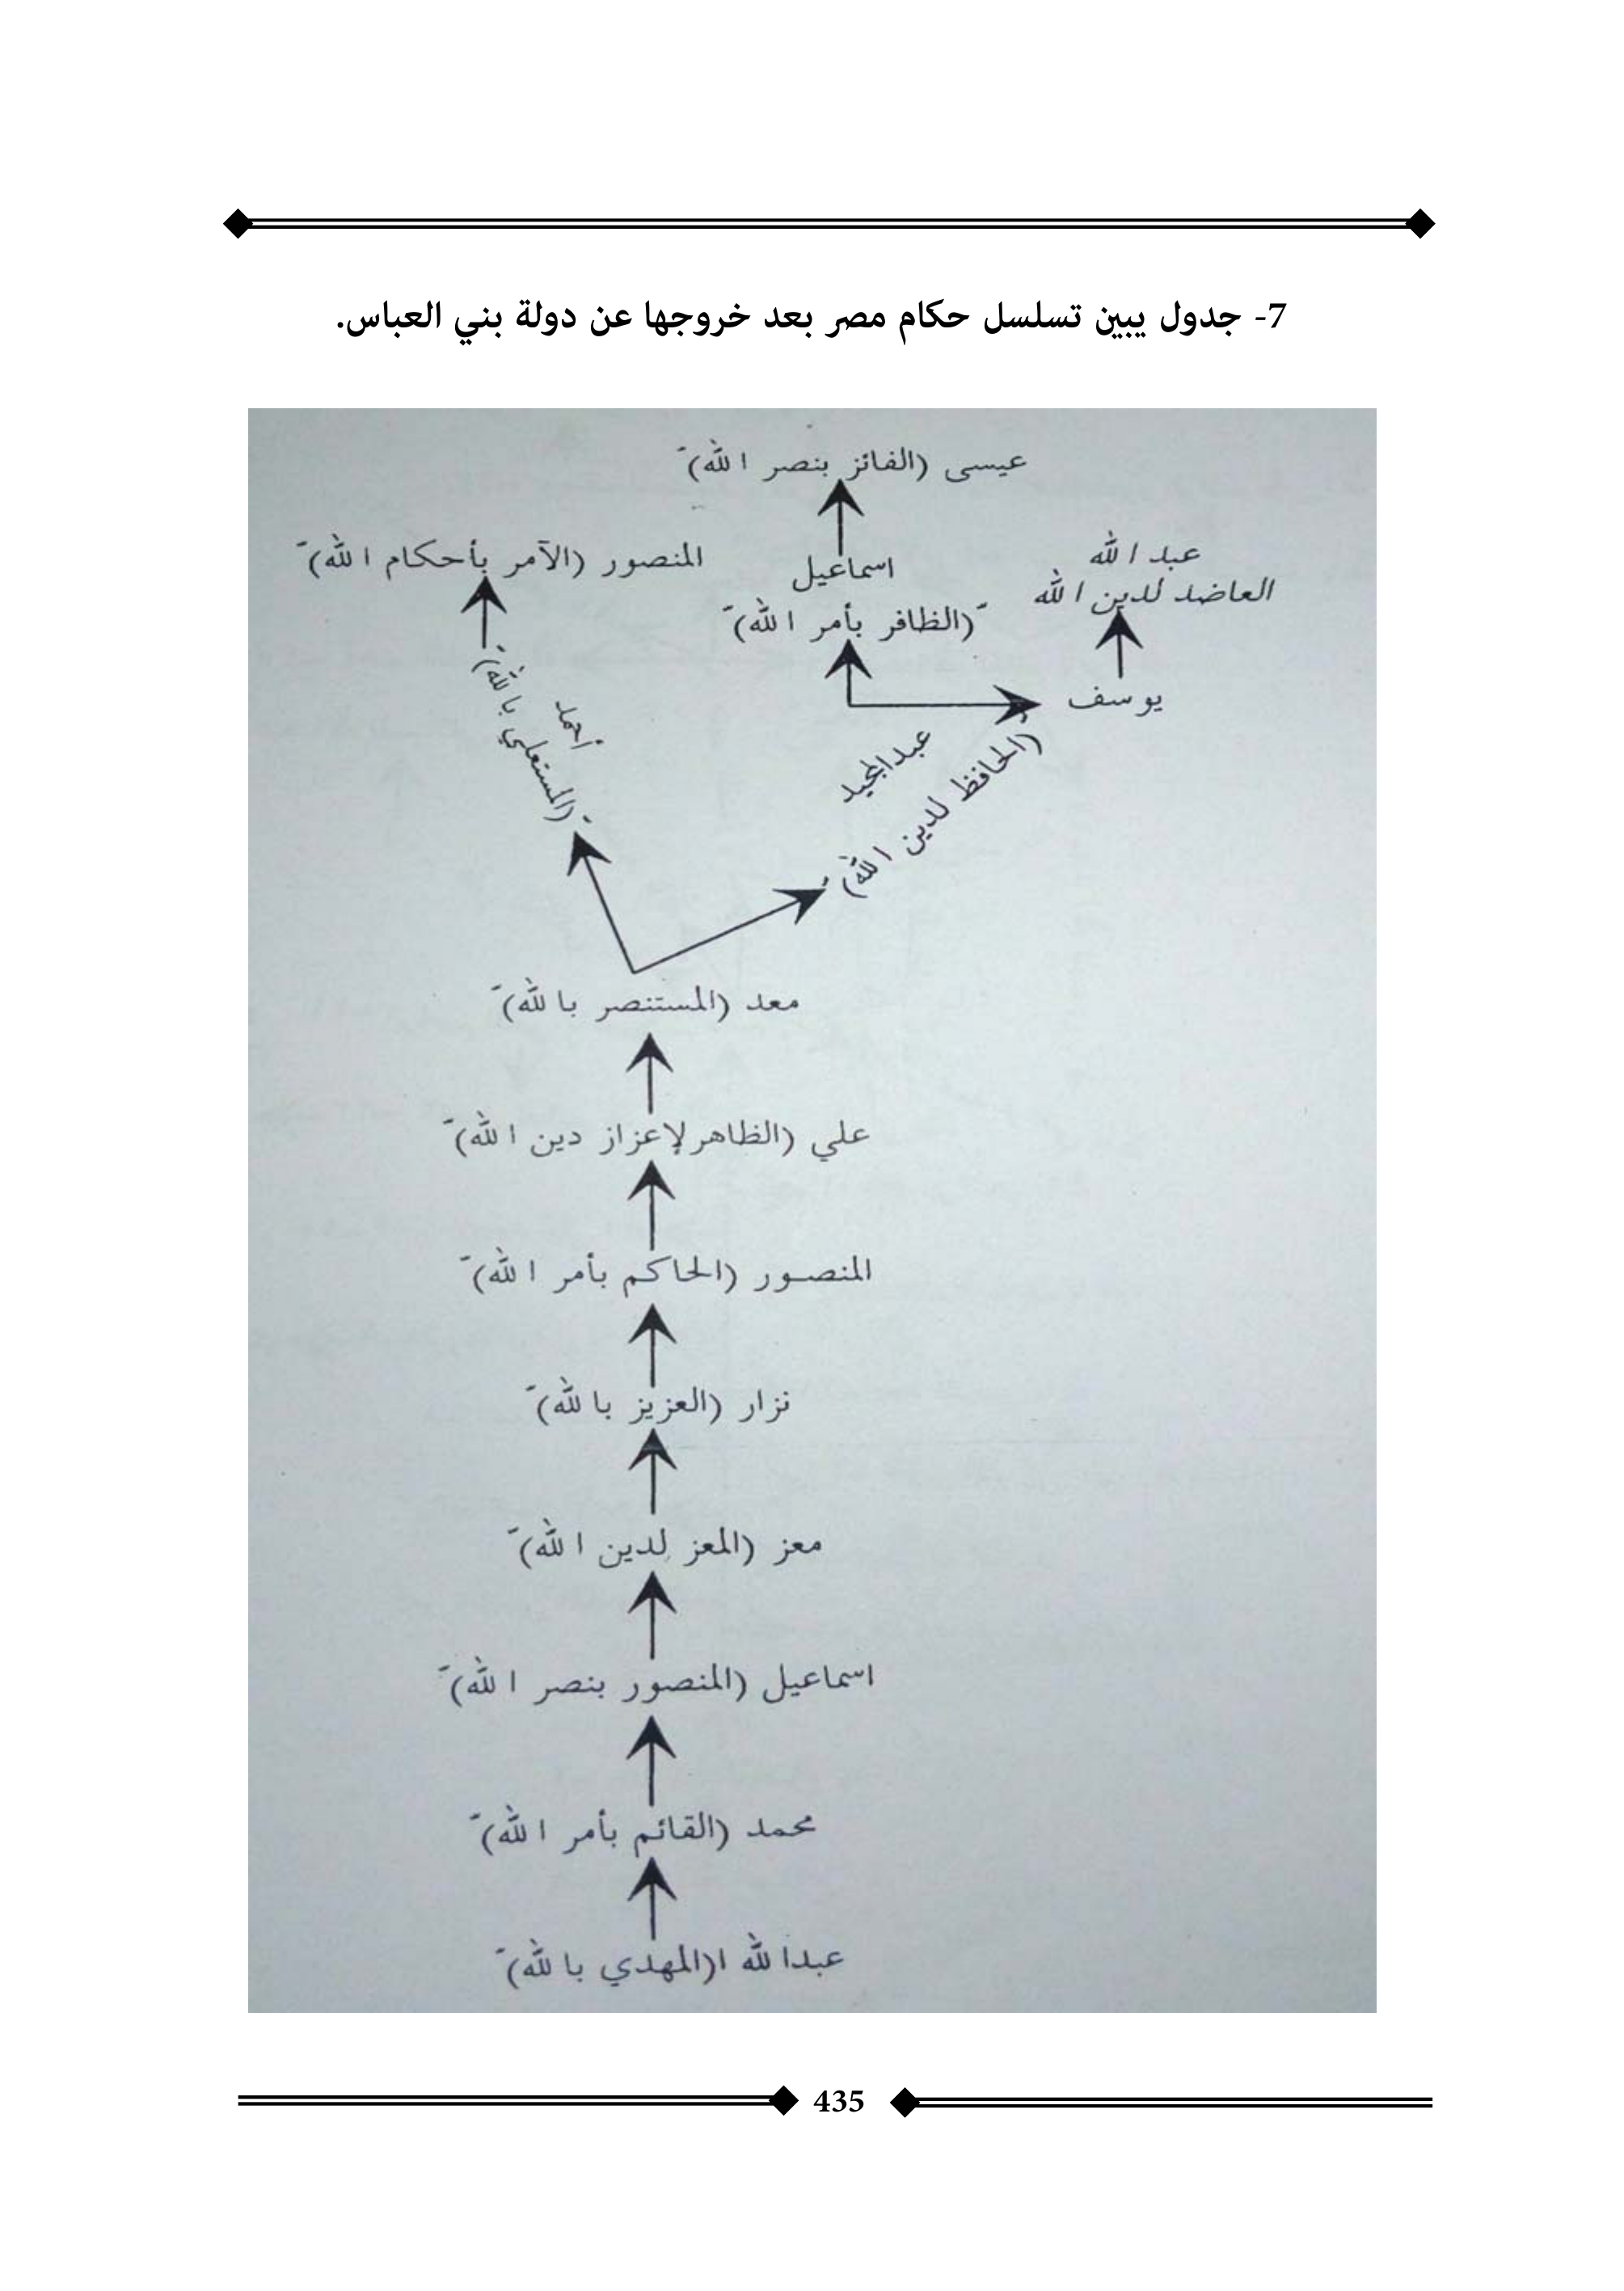 7- جدول يبين تسلسل حكام مصر بعد خروجها عن دولة بني العباس.
عيسى (الفائز بنصر الله)
المنصور (الآمر بأحكام الله)
اسماعيل
(الظافر بأمر الله)
عبد الله
العاضد لدين الله
يوسف
أحمد
(المستعلي بالله)
عبدالمجيد
(الحافظ لدين الله)
معد (المستنصر بالله)
علي (الظاهر لإعزاز دين الله)
المنصور (الحاكم بأمر الله)
نزار (العزيز بالله)
معز (المعز لدين الله)
اسماعيل (المنصور بنصر الله)
محمد (القائم بأمر الله)
عبدالله ا(المهدي بالله)
435